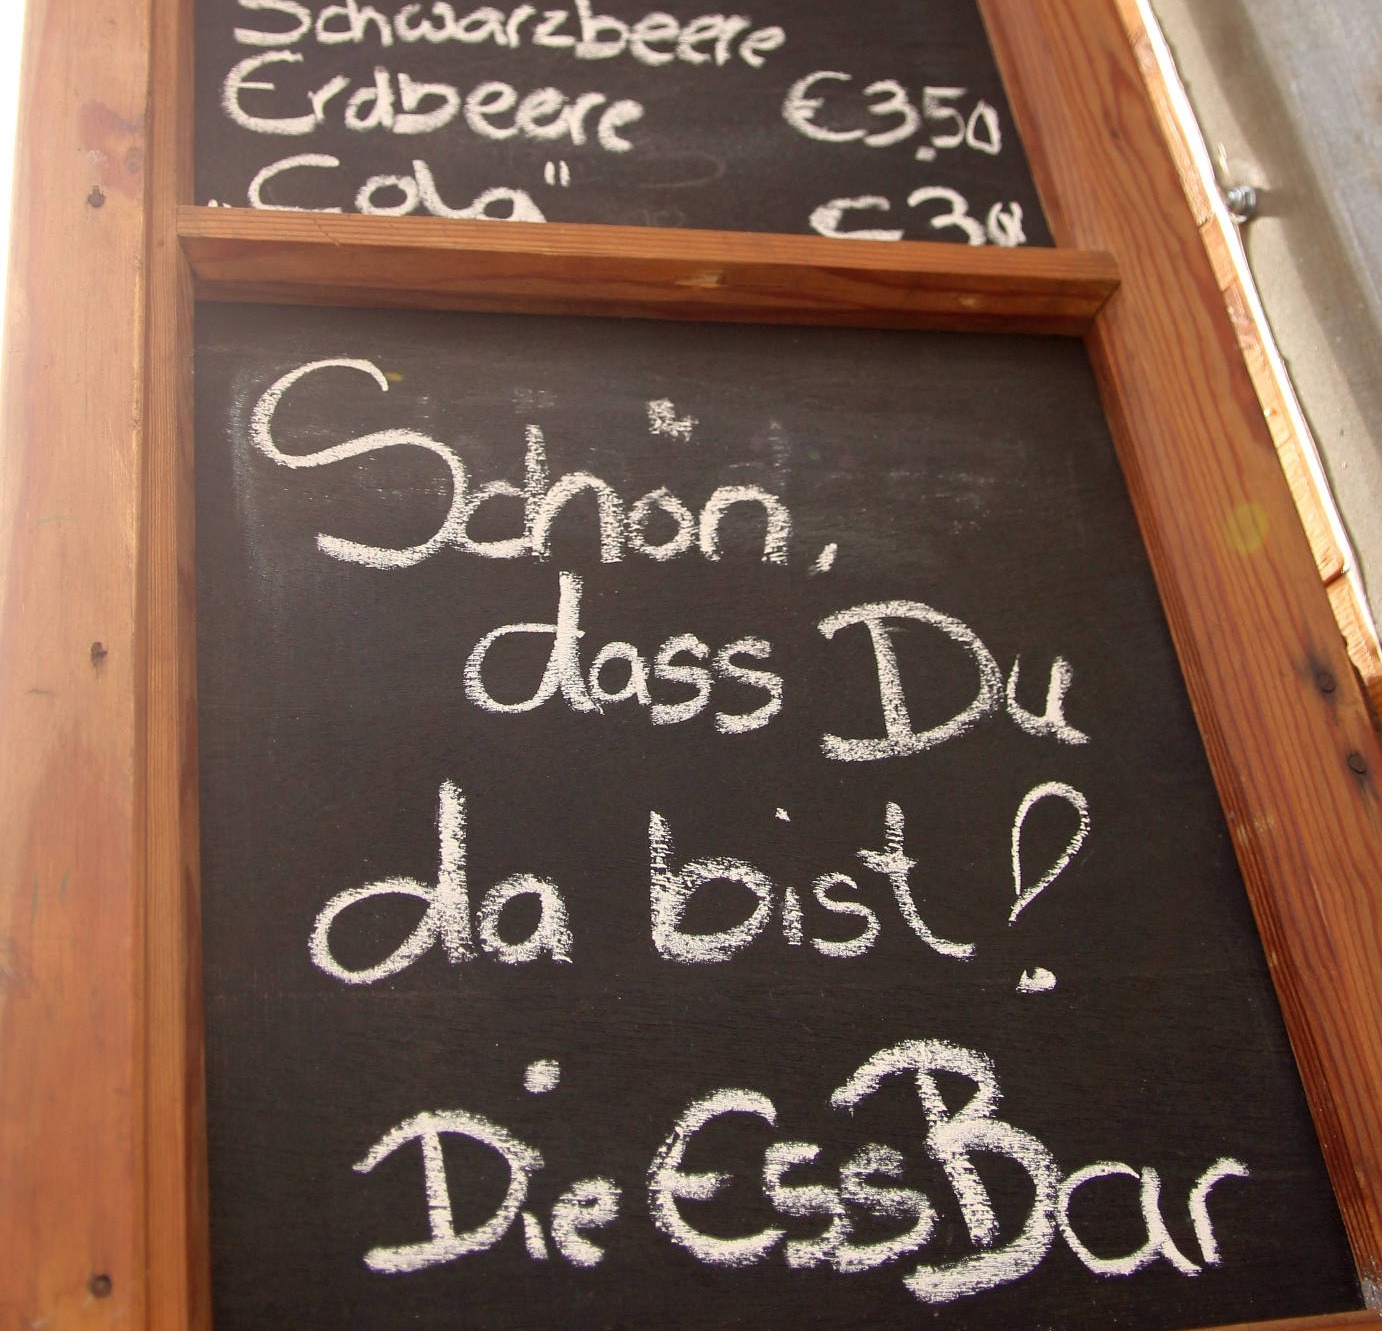 Schwarzbeere
Erdbeere €3,50
„Cola"
Schön,
dass Du
da bist!
Die EssBar